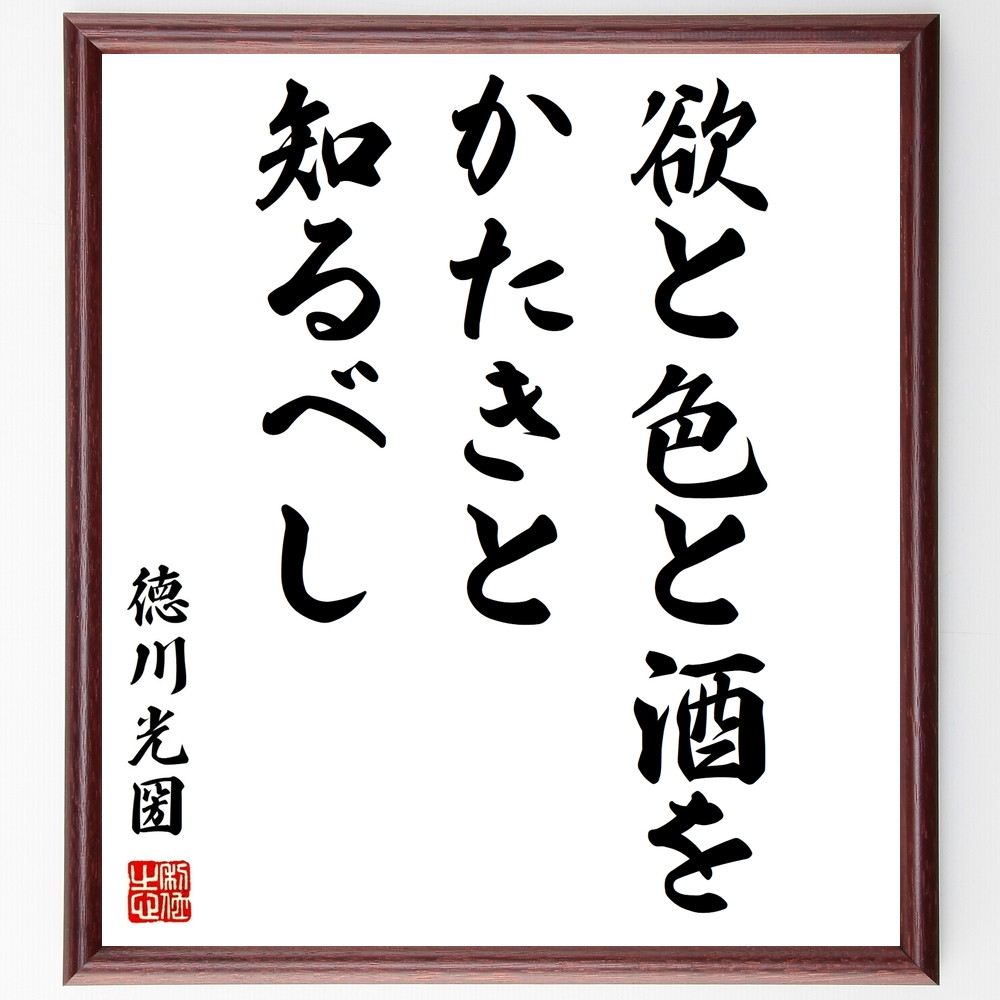 欲と色と酒を
かたきと
知るべし
徳川光圀